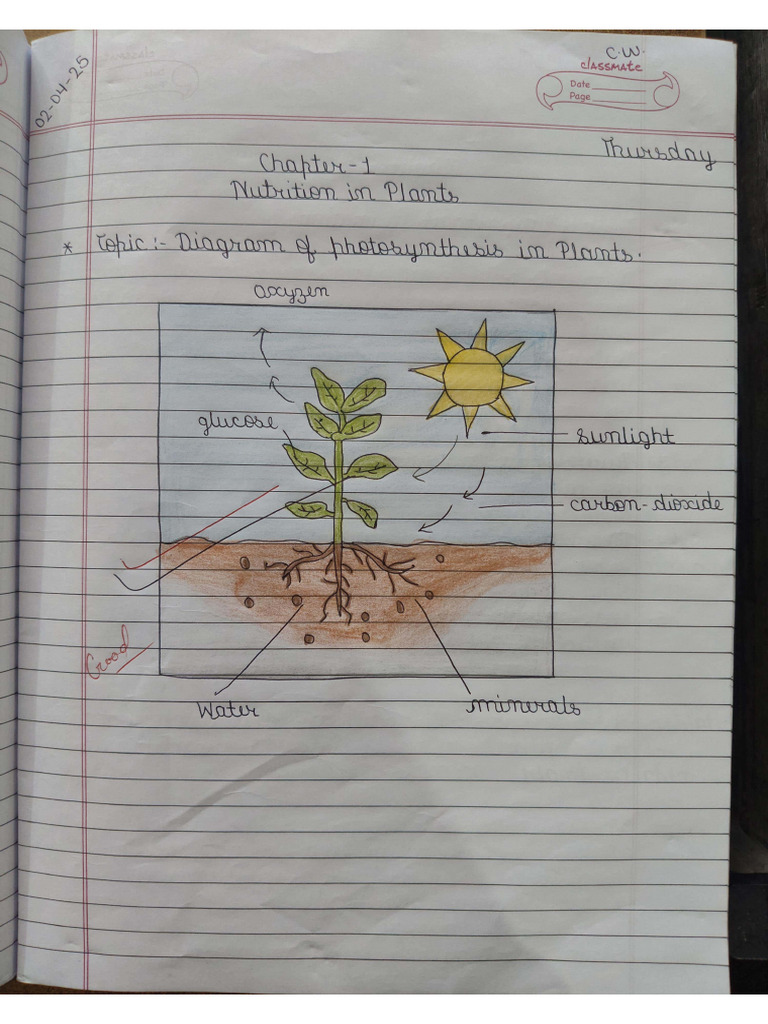 C.W.
classmate
Date
Page
02-04-25
Thursday
Chapter-1
Nutrition in Plants
* Topic :- Diagram of photosynthesis in Plants.
oxyzen
glucose
sunlight
carbon-dioxide
Good
Water
minerals